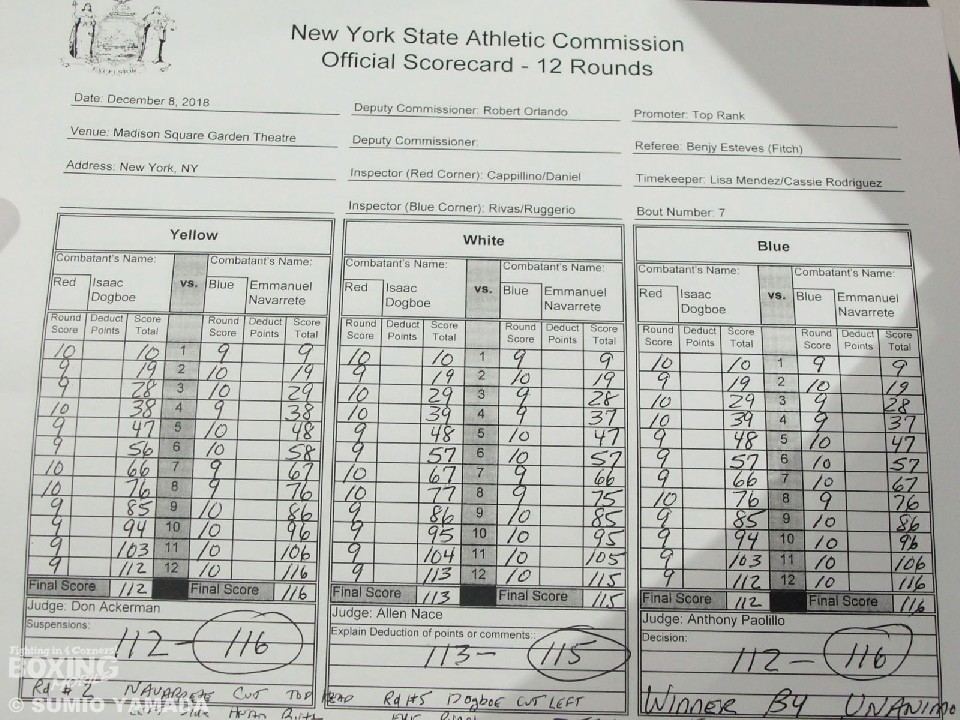 EXCELSIOR
New York State Athletic Commission
Official Scorecard - 12 Rounds
Date: December 8, 2018
Venue: Madison Square Garden Theatre
Address: New York, NY
Deputy Commissioner: Robert Orlando
Deputy Commissioner:
Inspector (Red Corner): Cappillino/Daniel
Inspector (Blue Corner): Rivas/Ruggerio
Promoter: Top Rank
Referee: Benjy Esteves (Fitch)
Timekeeper: Lisa Mendez/Cassie Rodriguez
Bout Number: 7
Yellow
Combatant's Name: vs. Combatant's Name:
Red Isaac Dogboe Blue Emmanuel Navarrete
Round Score Deduct Points Score Total Round Score Deduct Points Score Total
10 10 1 9 9
9 19 2 10 19
9 28 3 10 29
10 38 4 9 38
9 47 5 10 48
9 56 6 10 58
10 66 7 9 67
10 76 8 9 76
9 85 9 10 86
9 94 10 10 96
9 103 11 10 106
9 112 12 10 116
Final Score 112 Final Score 116
Judge: Don Ackerman
Suspensions:
112 - 116
White
Combatant's Name: vs. Combatant's Name:
Red Isaac Dogboe Blue Emmanuel Navarrete
Round Score Deduct Points Score Total Round Score Deduct Points Score Total
10 10 1 9 9
9 19 2 10 19
10 29 3 9 28
10 39 4 9 37
9 48 5 10 47
9 57 6 10 57
10 67 7 9 66
10 77 8 9 75
9 86 9 10 85
9 95 10 10 95
9 104 11 10 105
9 113 12 10 115
Final Score 113 Final Score 115
Judge: Allen Nace
Explain Deduction of points or comments:
113 - 115
Blue
Combatant's Name: vs. Combatant's Name:
Red Isaac Dogboe Blue Emmanuel Navarrete
Round Score Deduct Points Score Total Round Score Deduct Points Score Total
10 10 1 9 9
9 19 2 10 19
10 29 3 9 28
10 39 4 9 37
9 48 5 10 47
9 57 6 10 57
9 66 7 10 67
10 76 8 9 76
9 85 9 10 86
9 94 10 10 96
9 103 11 10 106
9 112 12 10 116
Final Score 112 Final Score 116
Judge: Anthony Paolillo
Decision:
112 - 116
Rd #2 NAVARRETE CUT TOP HEAD Rd #5 Dogboe CUT LEFT
WINNER BY UNANIMO
Fighting in 4 Corners
BOXING
© SUMIO YAMADA